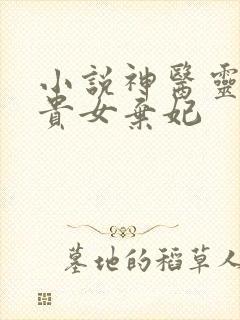 小說神醫靈
貴女棄妃
墓地的稻草人